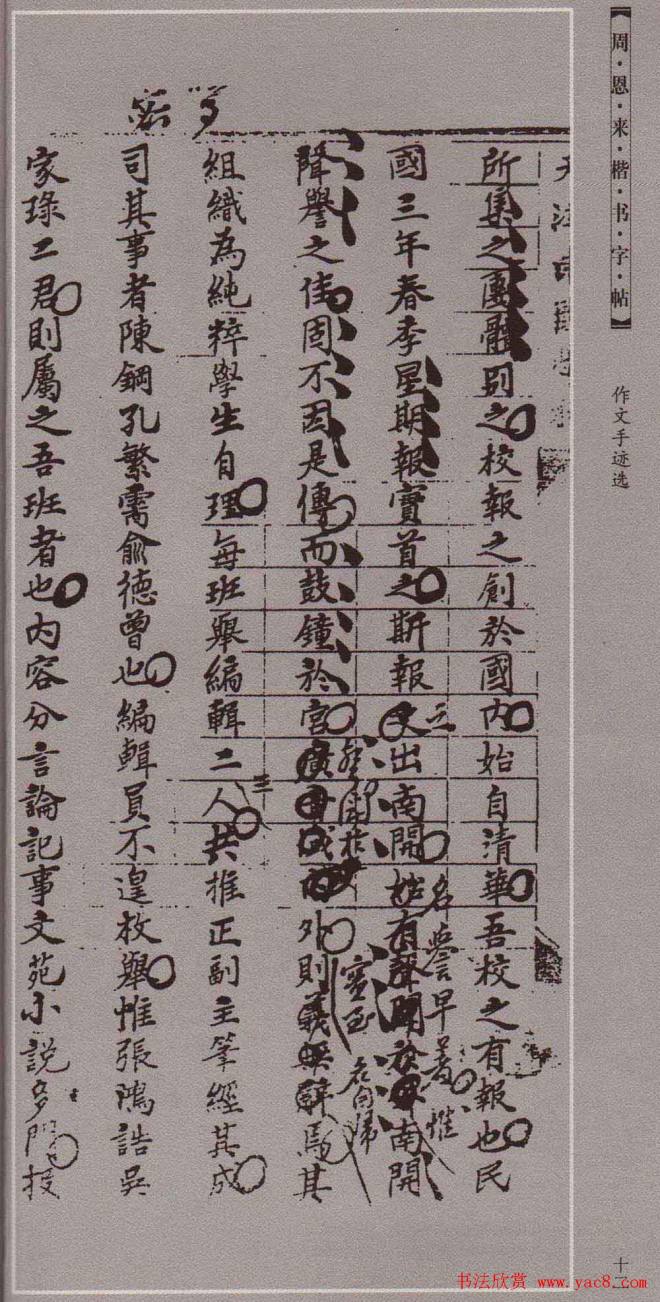 【周·恩·来·楷·书·字·帖】
作文手迹选
所集之團體別之校報之創於國内始自清華吾校之有報也民
國三年春季星期報實首之斯報出南開南開
之
名譽早著惟
聲譽之佳固不因是傳而鼓鐘於宮外則義無辭焉其
組織為純粹學生自理每班舉編輯二人共推正副主筆經其成
三
司其事者陳鋼孔繁霱俞德曾也編輯員不遑枚舉惟張鴻誥吳
家琭二君則屬之吾班者也内容分言論記事文苑小說多門投
十二
书法欣赏 www.yac8.com